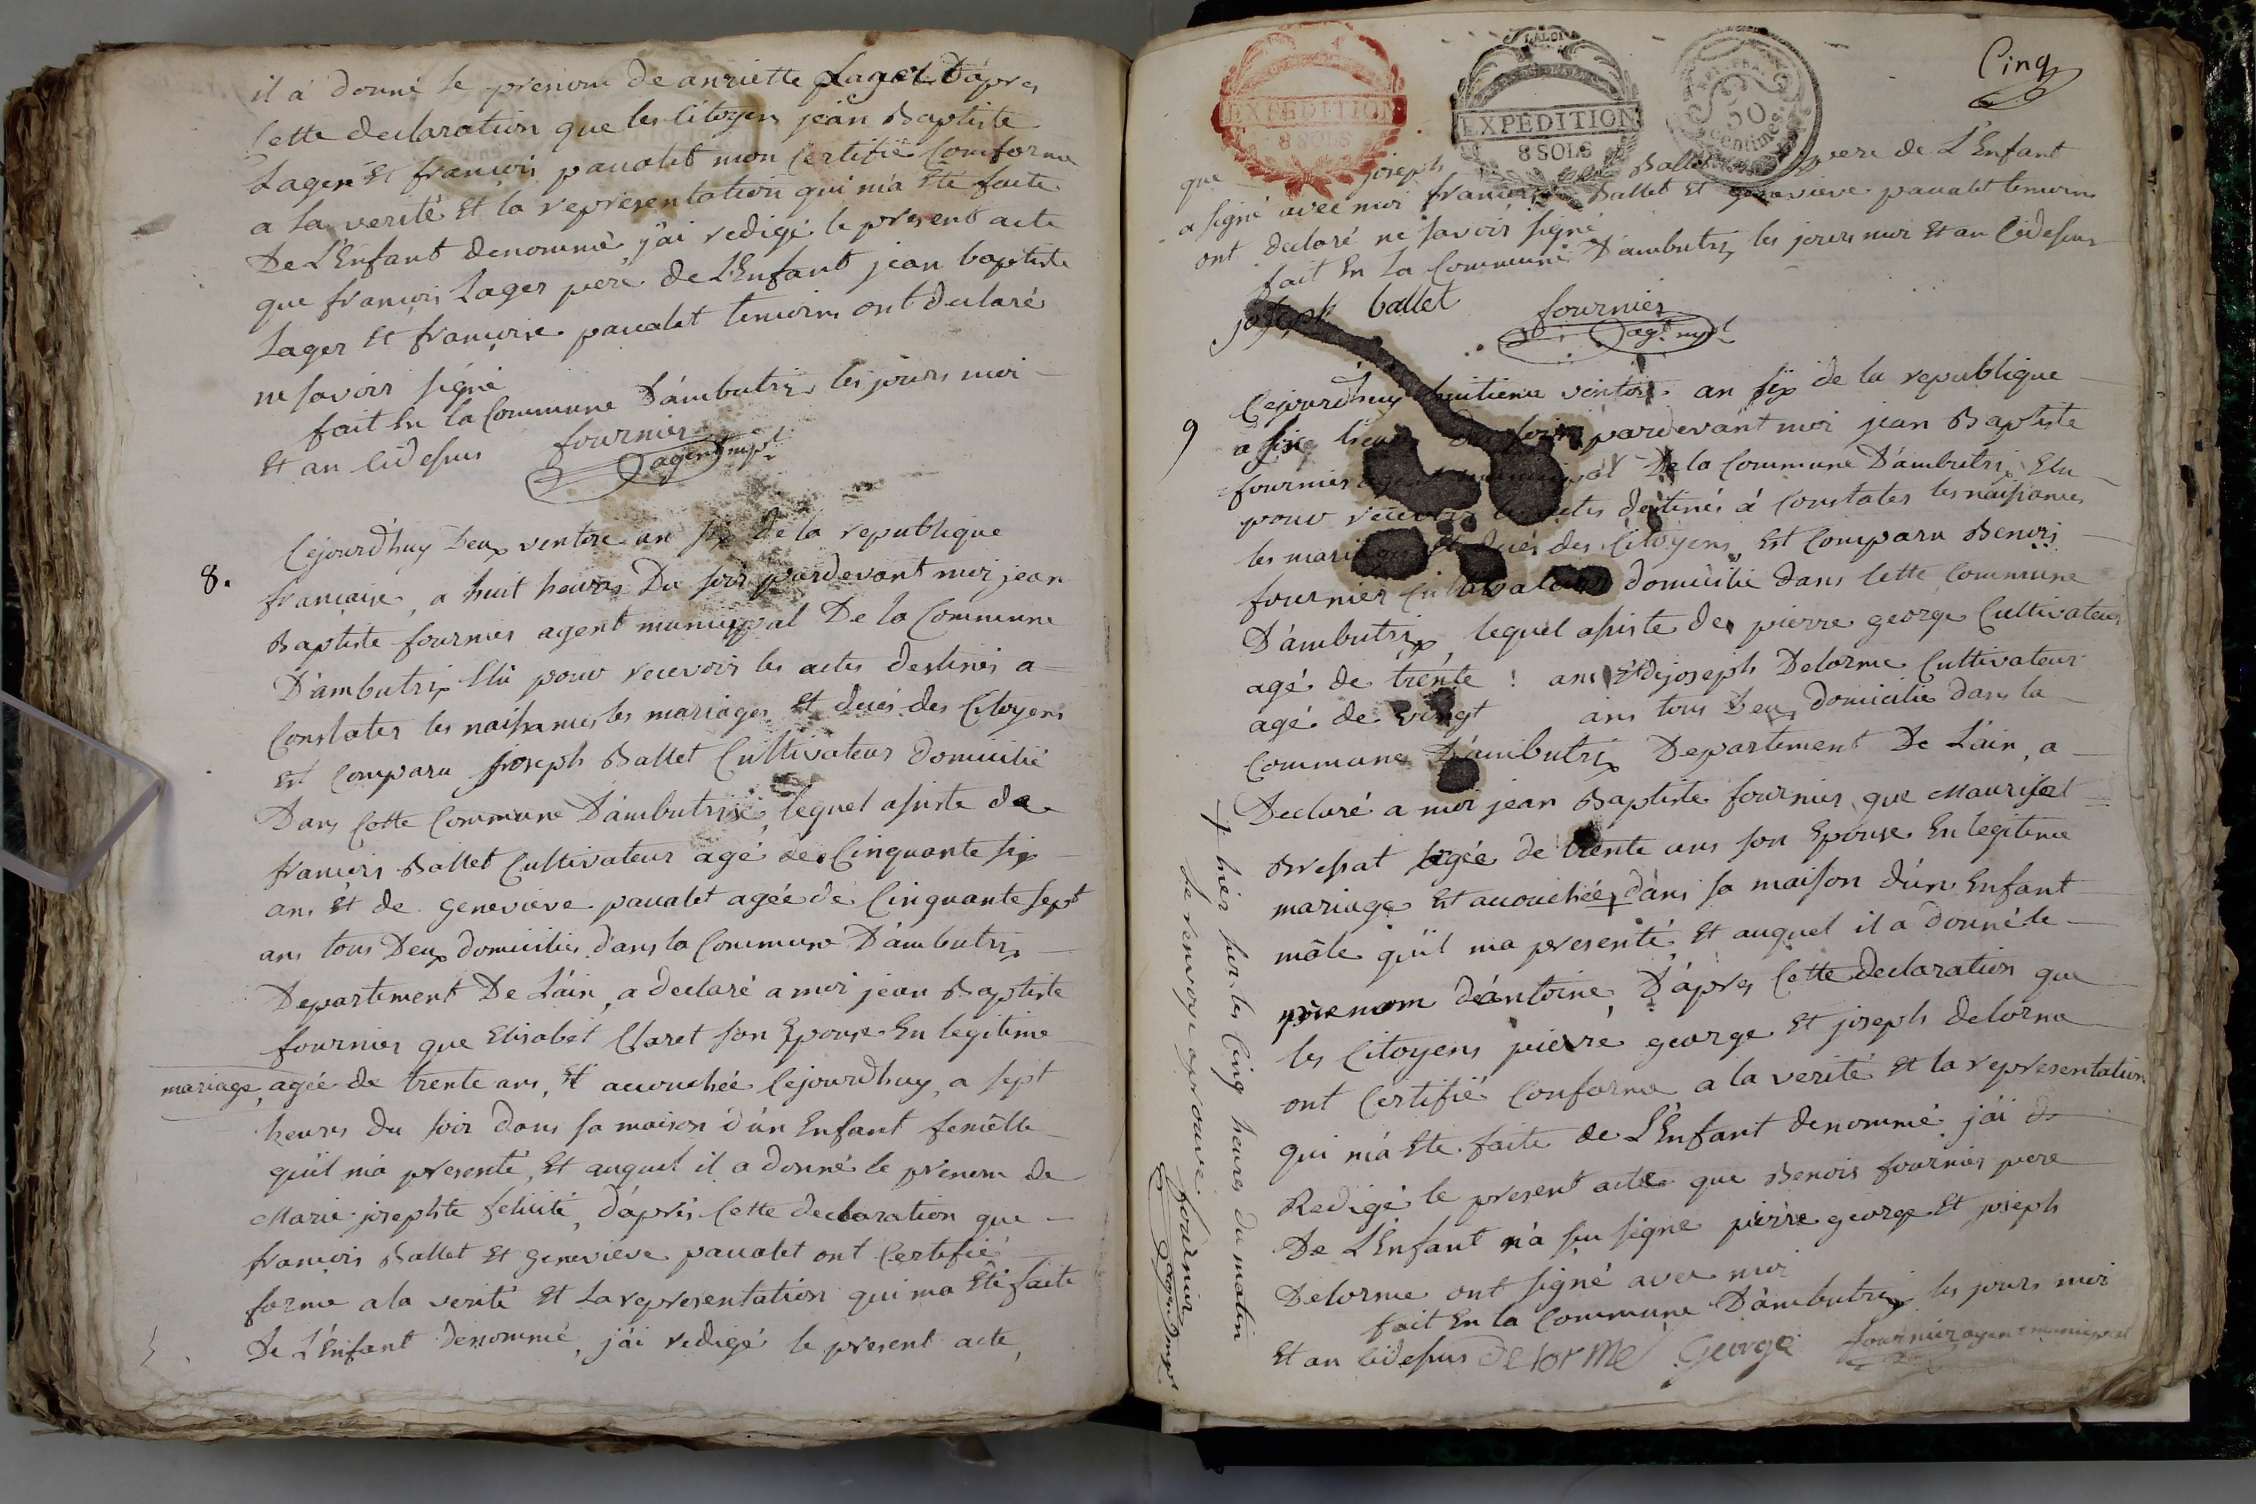 il a donné le prenom de anriette Lager D'après
Cette declaration que les Citoyens jean Baptiste
Lager Et francois paualet mon Certifié Conforme
a La verité Et la representation qui m'a Eté faite
De L'Enfant denommé, j'ai redigé le present acte
que francois Lager pere de L'Enfant jean baptiste
Lager Et francoise paualet temoins ont declaré
ne savoir signé
fait En la Commune D'ambutrix les jours moi
Et an cidesus fournier
agent mpl
8.
Cejourd'huy Deux ventose an six de la republique
francaise, a huit heures Du soir pardevant moi jean
Baptiste fournier agent municipal De la Commune
D'ambutrix Elû pour recevoir les actes destinés a
Constater les naissances les mariages Et decés des Citoyens
Est Comparu joseph Ballet Cultivateur Domicilié
Dans Cette Commune D'ambutrix, lequel assiste de
francois Ballet Cultivateur agé de Cinquante six
ans Et de genevieve paualet agée de Cinquante sept
ans tous Deux domiciliés dans la Commune D'ambutrix
Departement De L'ain, a declaré a moi jean Baptiste
fournier que Elisabet Claret son Epouse En legitime
mariage, agée de trente ans, Et accouchée Cejourd'huy, a sept
heures du soir dans sa maison d'un Enfant femêlle
qu'il m'a presenté, Et auquel il a donné le prenom de
Marie josephte felicité, d'après Cette declaration que
francois Ballet Et genevieve paualet ont Certifié
forme a la verité Et La representation qui ma Eté faite
De L'Enfant denommé, j'ai redigé le present acte,
Cinq
EXPEDITION
8 SOLS
LA LOI
EXPEDITION
8 SOLS
50
Centimes
que joseph Ballet pere de L'Enfant
a signé avec moi francois Ballet Et genevieve paualet temoins
ont declaré ne savoir signé
fait En La Commune D'ambutrix les jours moi Et an Cidesus
joseph ballet fournier
agt mpl
9
Cejourd'huy huitieme ventose an six de la republique
a six heures du soir pardevant moi jean Baptiste
fournier agent municipal De la Commune D'ambutrix Elu
pour recevoir les actes destinés á Constater les naissances
les mariages Et decés des Citoyens, Est Comparu Benois
fournier Cultivateur domicilié dans Cette Commune
D'ambutrix, lequel assiste de pierre george Cultivateur
agé de trente ans Et de joseph Delorme Cultivateur
agé de vingt ans tous Deux domicilié dans la
Commune D'ambutrix Departement De L'ain, a
Declaré a moi jean Baptiste fournier, que
Bressat agée de trente ans son Epouse En legitime
mariage Est accouchée dans sa maison d'un Enfant
mâle qu'il ma presenté Et auquel il a donné le
prenom d'antoine, D'après Cette declaration que
les Citoyens pierre george Et joseph delorme
ont Certifié Conforme a la verité Et la representation
qui m'a Ete faite de L'Enfant denommé j'ai de
Redigé le present acte que Benois fournier pere
De L'Enfant n'a su signe pierre george Et joseph
Delorme ont signé avec moi
fait En la Commune D'ambutrix les jours moi
Et an cidesus delorme George fournier agent municipal
hier sur les Cinq heures du matin
Le renvoye aprouvé fournier
agent mpl